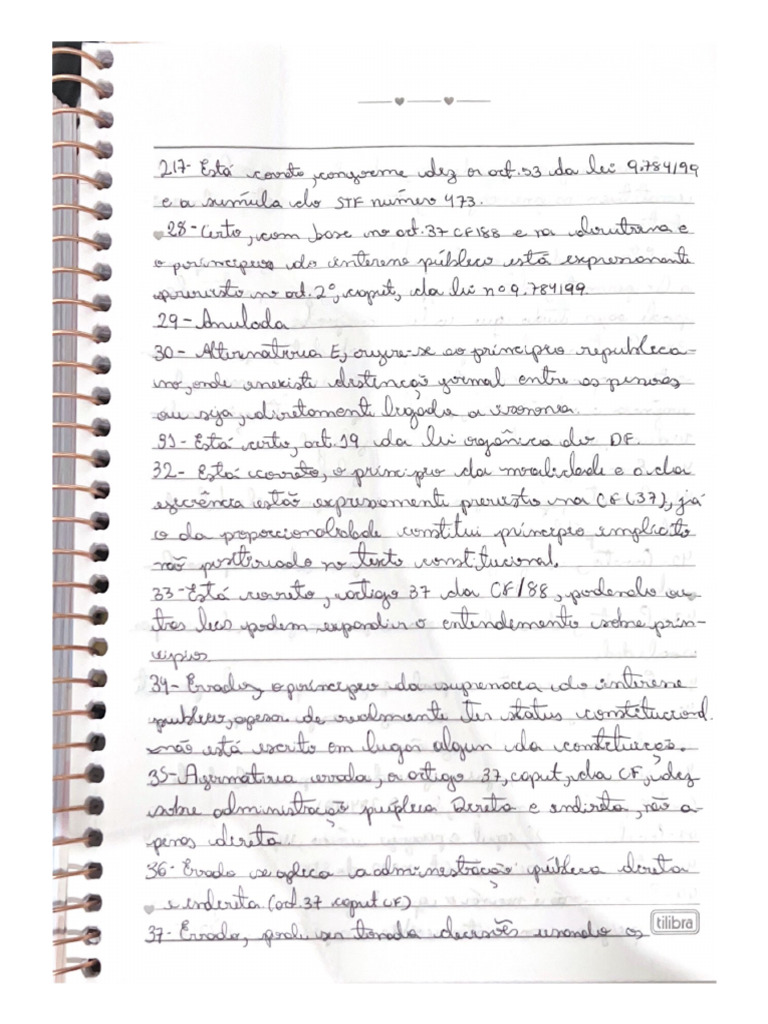 217- Está correto, conforme diz o art. 53 da lei 9.784/99
e a súmula do STF número 473.
28- Certo, com base no art. 37 CF/88 e na doutrina e
o princípio do interesse público está expressamente
previsto no art. 2º, caput, da lei nº 9.784/99
29- Anulada
30- Alternativa E, refere-se ao princípio republica-
no, onde inexiste distinção formal entre as pessoas
ou seja, diretamente ligada a isonomia.
31- Está certo, art. 19 da lei orgânica do DF.
32- Está correto, o princípio da moralidade e o da
eficiência estão expressamente previsto na CF (37), já
o da proporcionalidade constitui princípio implícito
não positivado no texto constitucional.
33- Está correto, artigo 37 da CF/88, podendo ou-
tras leis podem expandir o entendimento sobre prin-
cípios
34- Errado, o princípio da supremacia do interesse
público, apesar de realmente ter status constitucional.
não está escrito em lugar algum da constituição.
35- Afirmativa errada, o artigo 37, caput, da CF, diz
sobre administração pública Direta e indireta, não a-
penas direta.
36- Errado se aplica a administração pública direta
e indireta (art. 37 caput CF)
37- Errado, pode ser tomada decisões usando os
tilibra